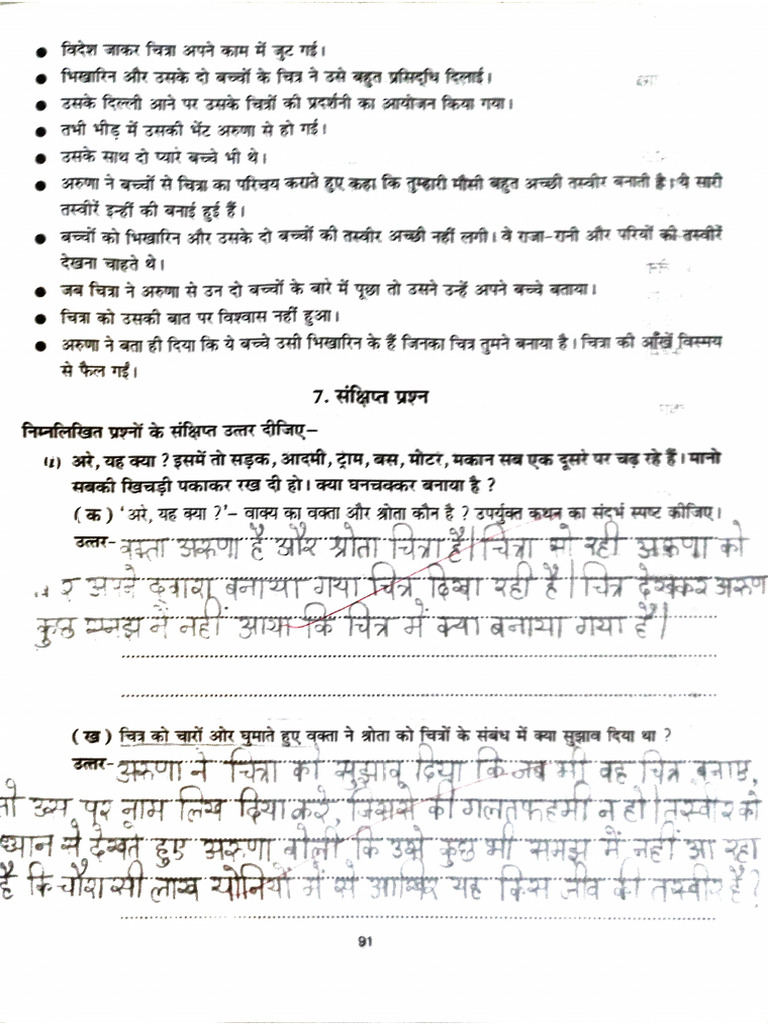 ● विदेश जाकर चित्रा अपने काम में जुट गई।
● भिखारिन और उसके दो बच्चों के चित्र ने उसे बहुत प्रसिद्धि दिलाई।
● उसके दिल्ली आने पर उसके चित्रों की प्रदर्शनी का आयोजन किया गया।
● तभी भीड़ में उसकी भेंट अरुणा से हो गई।
● उसके साथ दो प्यारे बच्चे भी थे।
● अरुणा ने बच्चों से चित्रा का परिचय कराते हुए कहा कि तुम्हारी मौसी बहुत अच्छी तस्वीर बनाती है। ये सारी
तस्वीरें इन्हीं की बनाई हुई हैं।
● बच्चों को भिखारिन और उसके दो बच्चों की तस्वीर अच्छी नहीं लगी। वे राजा-रानी और परियों की तस्वीरें
देखना चाहते थे।
● जब चित्रा ने अरुणा से उन दो बच्चों के बारे में पूछा तो उसने उन्हें अपने बच्चे बताया।
● चित्रा को उसकी बात पर विश्वास नहीं हुआ।
● अरुणा ने बता ही दिया कि ये बच्चे उसी भिखारिन के हैं जिनका चित्र तुमने बनाया है। चित्रा की आँखें विस्मय
से फैल गईं।
7. संक्षिप्त प्रश्न
निम्नलिखित प्रश्नों के संक्षिप्त उत्तर दीजिए–
अरे, यह क्या ? इसमें तो सड़क, आदमी, ट्राम, बस, मोटर, मकान सब एक दूसरे पर चढ़ रहे हैं। मानो
सबकी खिचड़ी पकाकर रख दी हो। क्या घनचक्कर बनाया है ?
(क) 'अरे, यह क्या ?'– वाक्य का वक्ता और श्रोता कौन है ? उपर्युक्त कथन का संदर्भ स्पष्ट कीजिए।
उत्तर– वक्ता अरुणा है और श्रोता चित्रा है। चित्रा सो रही अरुणा को
अपने द्वारा बनाया गया चित्र दिखा रही है। चित्र देखकर अरुणा
कुछ समझ में नहीं आया कि चित्र में क्या बनाया गया है।
(ख) चित्र को चारों ओर घुमाते हुए वक्ता ने श्रोता को चित्रों के संबंध में क्या सुझाव दिया था ?
उत्तर– अरुणा ने चित्रा को सुझाव दिया कि जब भी वह चित्र बनाए,
तो उस पर नाम लिख दिया करे, जिससे की गलतफहमी न हो। तस्वीर को
ध्यान से देखते हुए अरुणा बोली कि उसे कुछ भी समझ में नहीं आ रहा
है कि चौरासी लाख योनियों में से आखिर यह किस जीव की तस्वीर है?
91